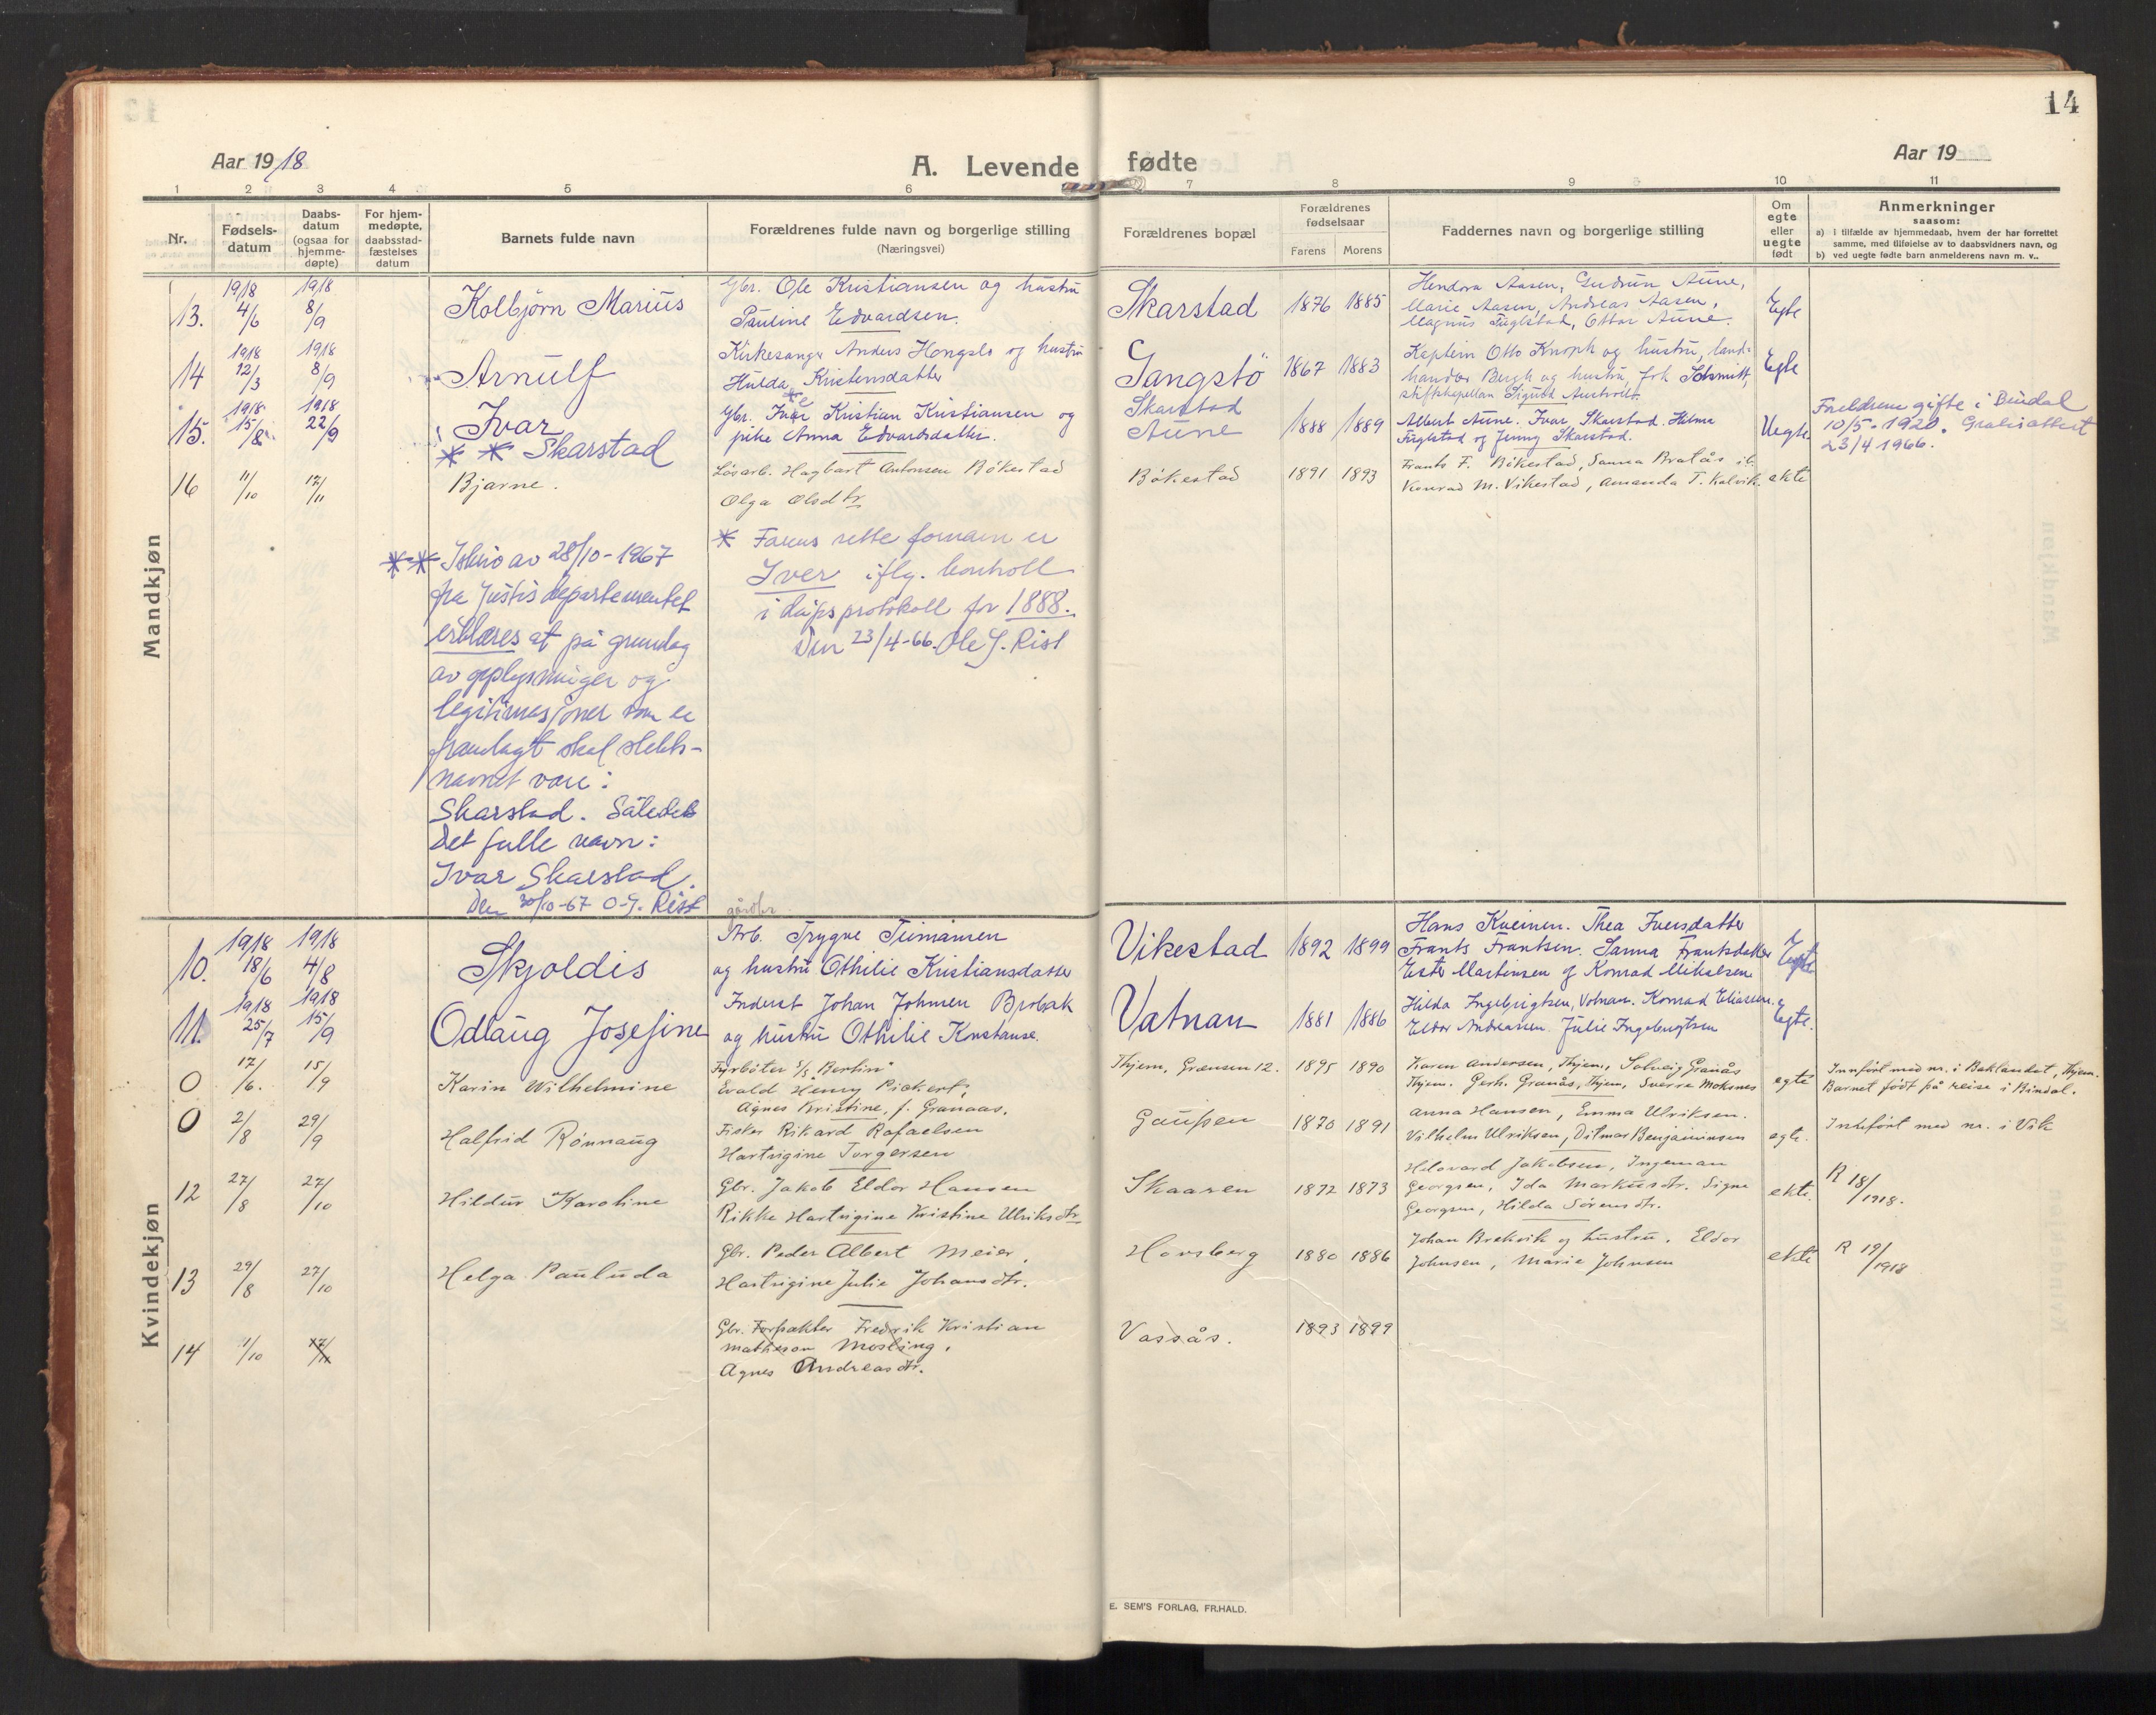 14
Aar 1918
A. Levende fødte
Aar 19
1 2 3 4 5 6 7 8 9 10 11
Nr.
Fødsels-
datum
Daabs-
datum
(ogsaa for
hjemme-
døpte)
For hjem-
medøpte,
daabsstad-
fæstelses
datum
Barnets fulde navn
Forældrenes fulde navn og borgerlige stilling
(Næringsvei)
Forældrenes bopæl
Forældrenes
fødselsaar
Farens Morens
Faddernes navn og borgerlige stilling
Om
egte
eller
uegte
født
Anmerkninger
saasom:
a) i tilfælde av hjemmedaab, hvem der har forrettet
samme, med tilføielse av to daabsvidners navn, og
b) ved uegte fødte barn anmelderens navn m. v..
Mandkjøn
1918 1918
13. 4/6 8/9
Kolbjørn Marius
Gbr. Ole Kristiansen og hustru
Pauline Edvardsen.
Skarstad
1876 1885
Hendora Aasen, Gudrun Aune,
Marie Aasen, Andreas Aasen,
Magnus Fuglstad, Ottar Aune.
Egte
1918 1918
14 12/3 8/9
Arnulf
Kirkesanger Anders Hongslo og hustru
Hulda Kristensdatter
Sangstö
1867 1883
Kaptein Otto Knoph og hustru, land-
handler Bergh og hustru, frk Schmitt,
stiftskapellan Sigurd
Egte
1918 1918
15. 15/8 22/9
Ivar
* * Skarstad
Gbr. Ivar Kristian Kristiansen og
pike Anna Edvardsdatter.
Skarstad
Aune
1888 1889
Albert Aune. Ivar Skarstad. Hilma
Fuglstad og Jenny Skarstad.
Uegte
Foreldrene gifte i Bindal
10/5-1920. Gratisattest
23/4 1966.
16 11/10 17/11
Bjarne.
Løsarb. Hagbart Antonsen Bökestad
Olga Olsdtr
Bökestad
1891 1893
Frants F. Bökestad, Sanna Bratås
Konrad M. Vikestad, Amanda T. Kalvik.
ekte
* Farens rette fornavn er
Iver iflg. konholl
i dåpsprotokoll for 1888.
Den 23/4-66. Ole J. Rist
** I skriv av 28/10-1967
fra Justisdepartementet
erklæres at på grunnlag
av opplysninger og
legitimasjoner som er
framlagt skal slekts-
navnet være:
Skarstad. Således
Det fulle navn:
Ivar Skarstad.
Den 30/10-67 O.J. Rist
Kvindekjøn
1918 1918
10. 18/6 4/8
Skjoldis
gårdbr
Arb. Trygve Teimansen
og hustru Othilie Kristiansdatter
Vikestad
1892 1899
Hans Kveinen. Thea Iversdatter
Frants Frantsen. Sanna Frantsdatter
Ester Martinsen og Konrad Mikalsen
Egte
1918 1918
11. 25/7 15/9
Odlaug Josefine
Inderst Johan Johnsen Brobak
og hustru Othilie Konstanse.
Vatnan
1881 1886
Hilda Ingebrigtsen, Vatnan. Konrad Eliassen.
Eldor Andreassen. Julie Ingebrigtsen
Egte.
0 17/6. 15/9
Karin Wilhelmine
Fyrböter s/s "Berlin"
Evald Henry Pickert,
Agnes Kristine, f. Granaas.
Thjem, Grænsen 12.
1895 1890
Karen Andersen, Thjem, Solveig Granås
Thjem. Gerh. Granås, Thjem, Sverre Moksnes
egte
Innfört med nr. i Baklandet, Thjem.
Barnet födt på reise i Bindal.
0 2/8 29/9
Halfrid Rönnaug
Fisker Rikard Rafaelsen
Hartvigine Torgersen
Gaupen
1870 1891
Anna Hansen, Emma Ulriksen.
Vilhelm Ulriksen, Ditmar Benjaminsen
egte.
Innfört med nr. i Vik
12 27/8 27/10
Hildur Karoline
Gbr. Jakob Eldor Hansen
Rikke Hartvigine Kristine Ulriksdtr
Skaaren
1872 1873
Hilovard Jakobsen, Ingeman
Georgsen, Ida Markusdtr. Signe
Georgsen, Hilda Sörensdtr.
ekte.
R 18/1918.
13 29/8 27/10
Helga Pauluda
Gbr. Peder Albert Meier,
Hartvigine Julie Johansdtr.
Horsberg
1880 1886
Johan Brekvik og hustru. Eldor
Johnsen, Marie Johnsen
ekte
R 19/1918
14 11/10 17/11
Gbr. Forpakter Fredrik Kristian
Matheson Mosling,
Agnes Andreasdtr.
Vassås.
1893 1899
E. SEM'S FORLAG, FR.HALD.